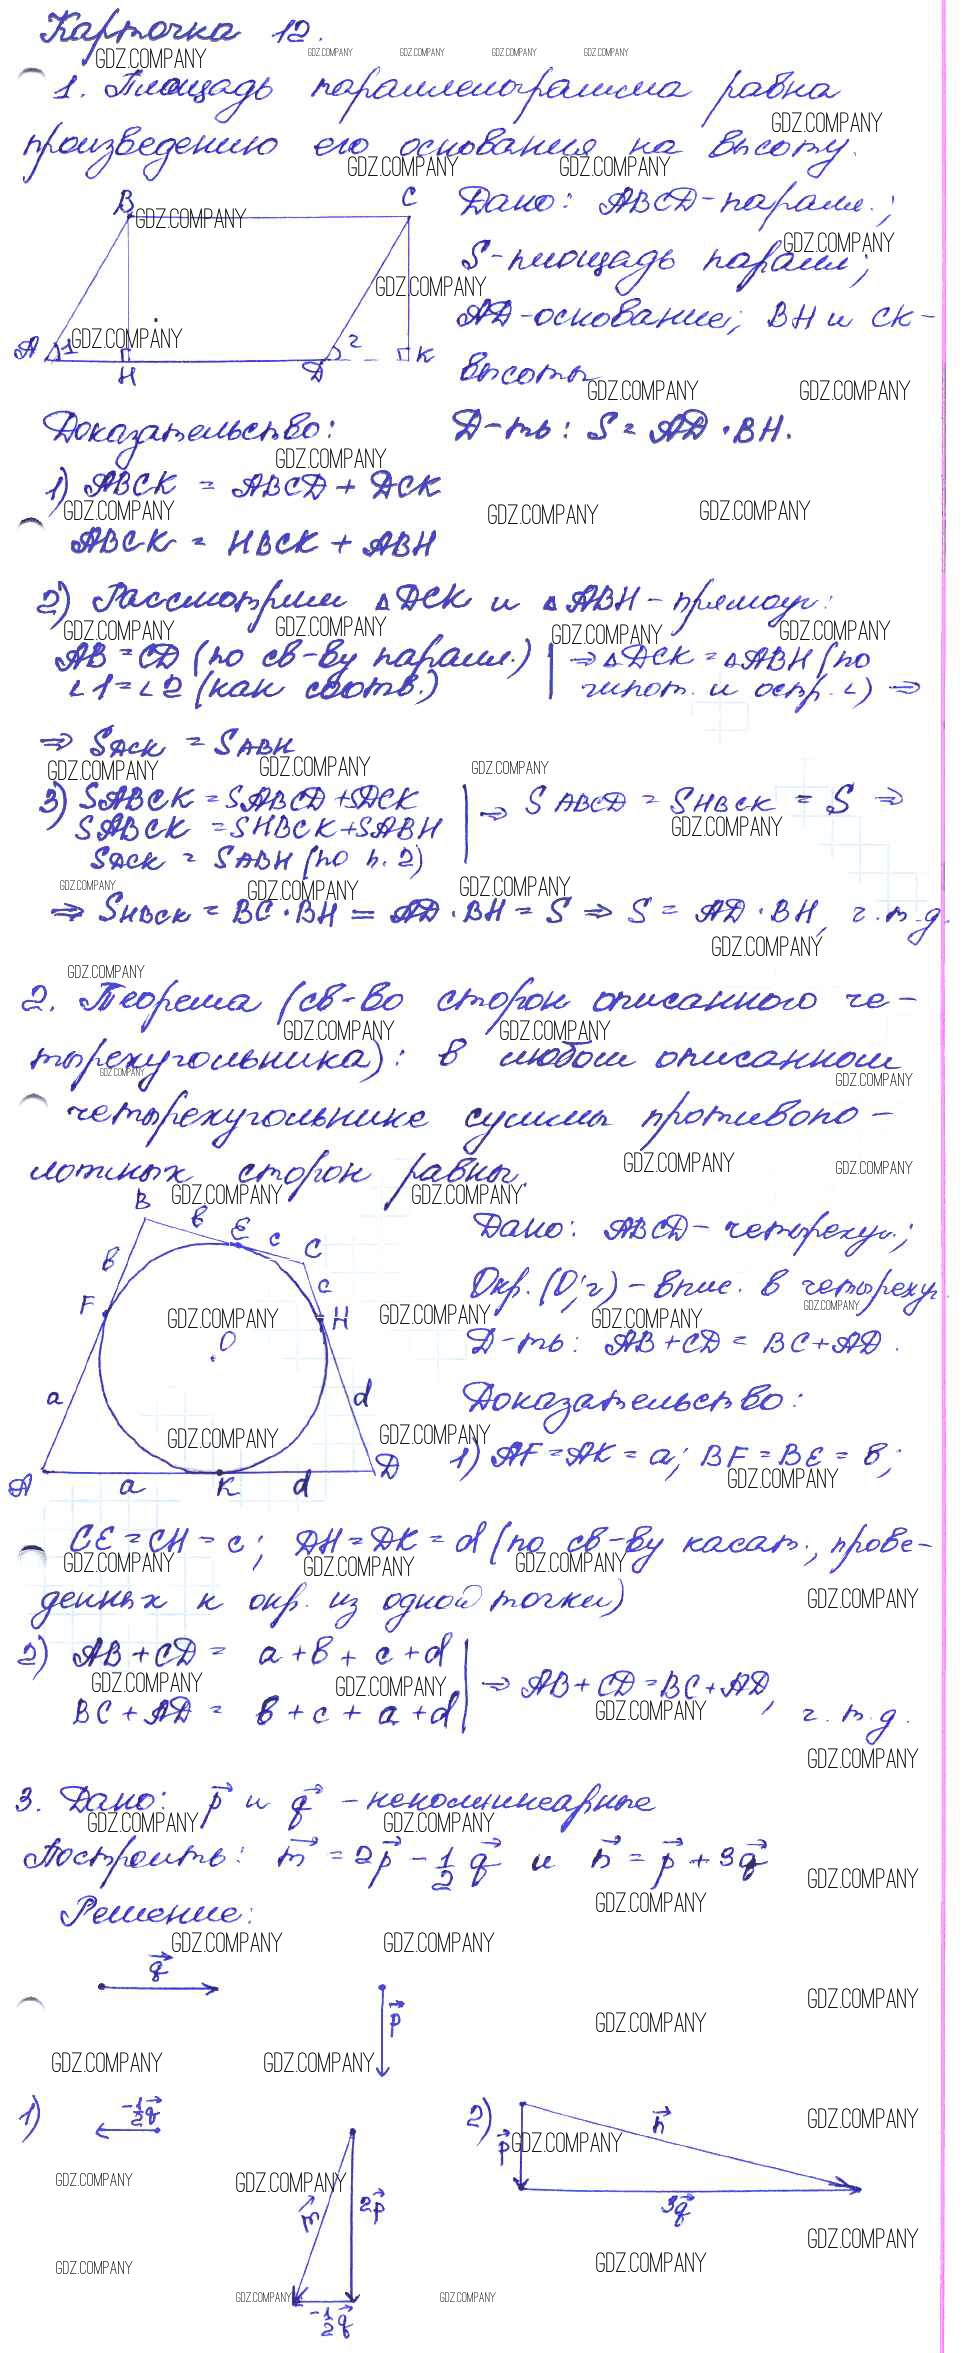 Карточка 12.
1. Площадь параллелограмма равна
произведению его основания на высоту.
B C
A 1 H D 2 K
Дано: ABCD - паралл.;
S - площадь паралл.;
AD - основание; BH и CK -
высоты
Д-ть: S = AD · BH.
Доказательство:
1) ABCK = ABCD + DCK
ABCK = HBCK + ABH
2) Рассмотрим △DCK и △ABH - прямоуг:
AB = CD (по св-ву паралл.) | ⇒ △DCK = △ABH (по
∠1 = ∠2 (как соотв.) | гипот. и остр. ∠) ⇒
⇒ SDCK = SABH
3) SABCK = SABCD + SDCK
SABCK = SHBCK + SABH
SDCK = SABH (по п. 2)
⇒ SABCD = SHBCK = S ⇒
⇒ SHBCK = BC · BH = AD · BH = S ⇒ S = AD · BH, ч.т.д.
2. Теорема (св-во сторон описанного че-
тырехугольника): в любом описанном
четырехугольнике суммы противопо-
ложных сторон равны.
B в E c C
в c
F H
O
a d
A a K d D
Дано: ABCD - четырехуг.;
Окр. (O; r) - впис. в четырехуг.
Д-ть: AB + CD = BC + AD.
Доказательство:
1) AF = AK = a; BF = BE = в;
CE = CH = c; DH = DK = d (по св-ву касат., прове-
денных к окр. из одной точки)
2) AB + CD = a + в + c + d
BC + AD = в + c + a + d
⇒ AB + CD = BC + AD,
ч.т.д.
3. Дано: p⃗ и q⃗ - неколлинеарные
Построить: m⃗ = 2p⃗ - 1/2 q⃗ и n⃗ = p⃗ + 3q⃗
Решение:
q⃗
p⃗
1) -1/2 q⃗
m⃗ 2p⃗
-1/2 q⃗
2) p⃗ n⃗
3q⃗
GDZ.COMPANY